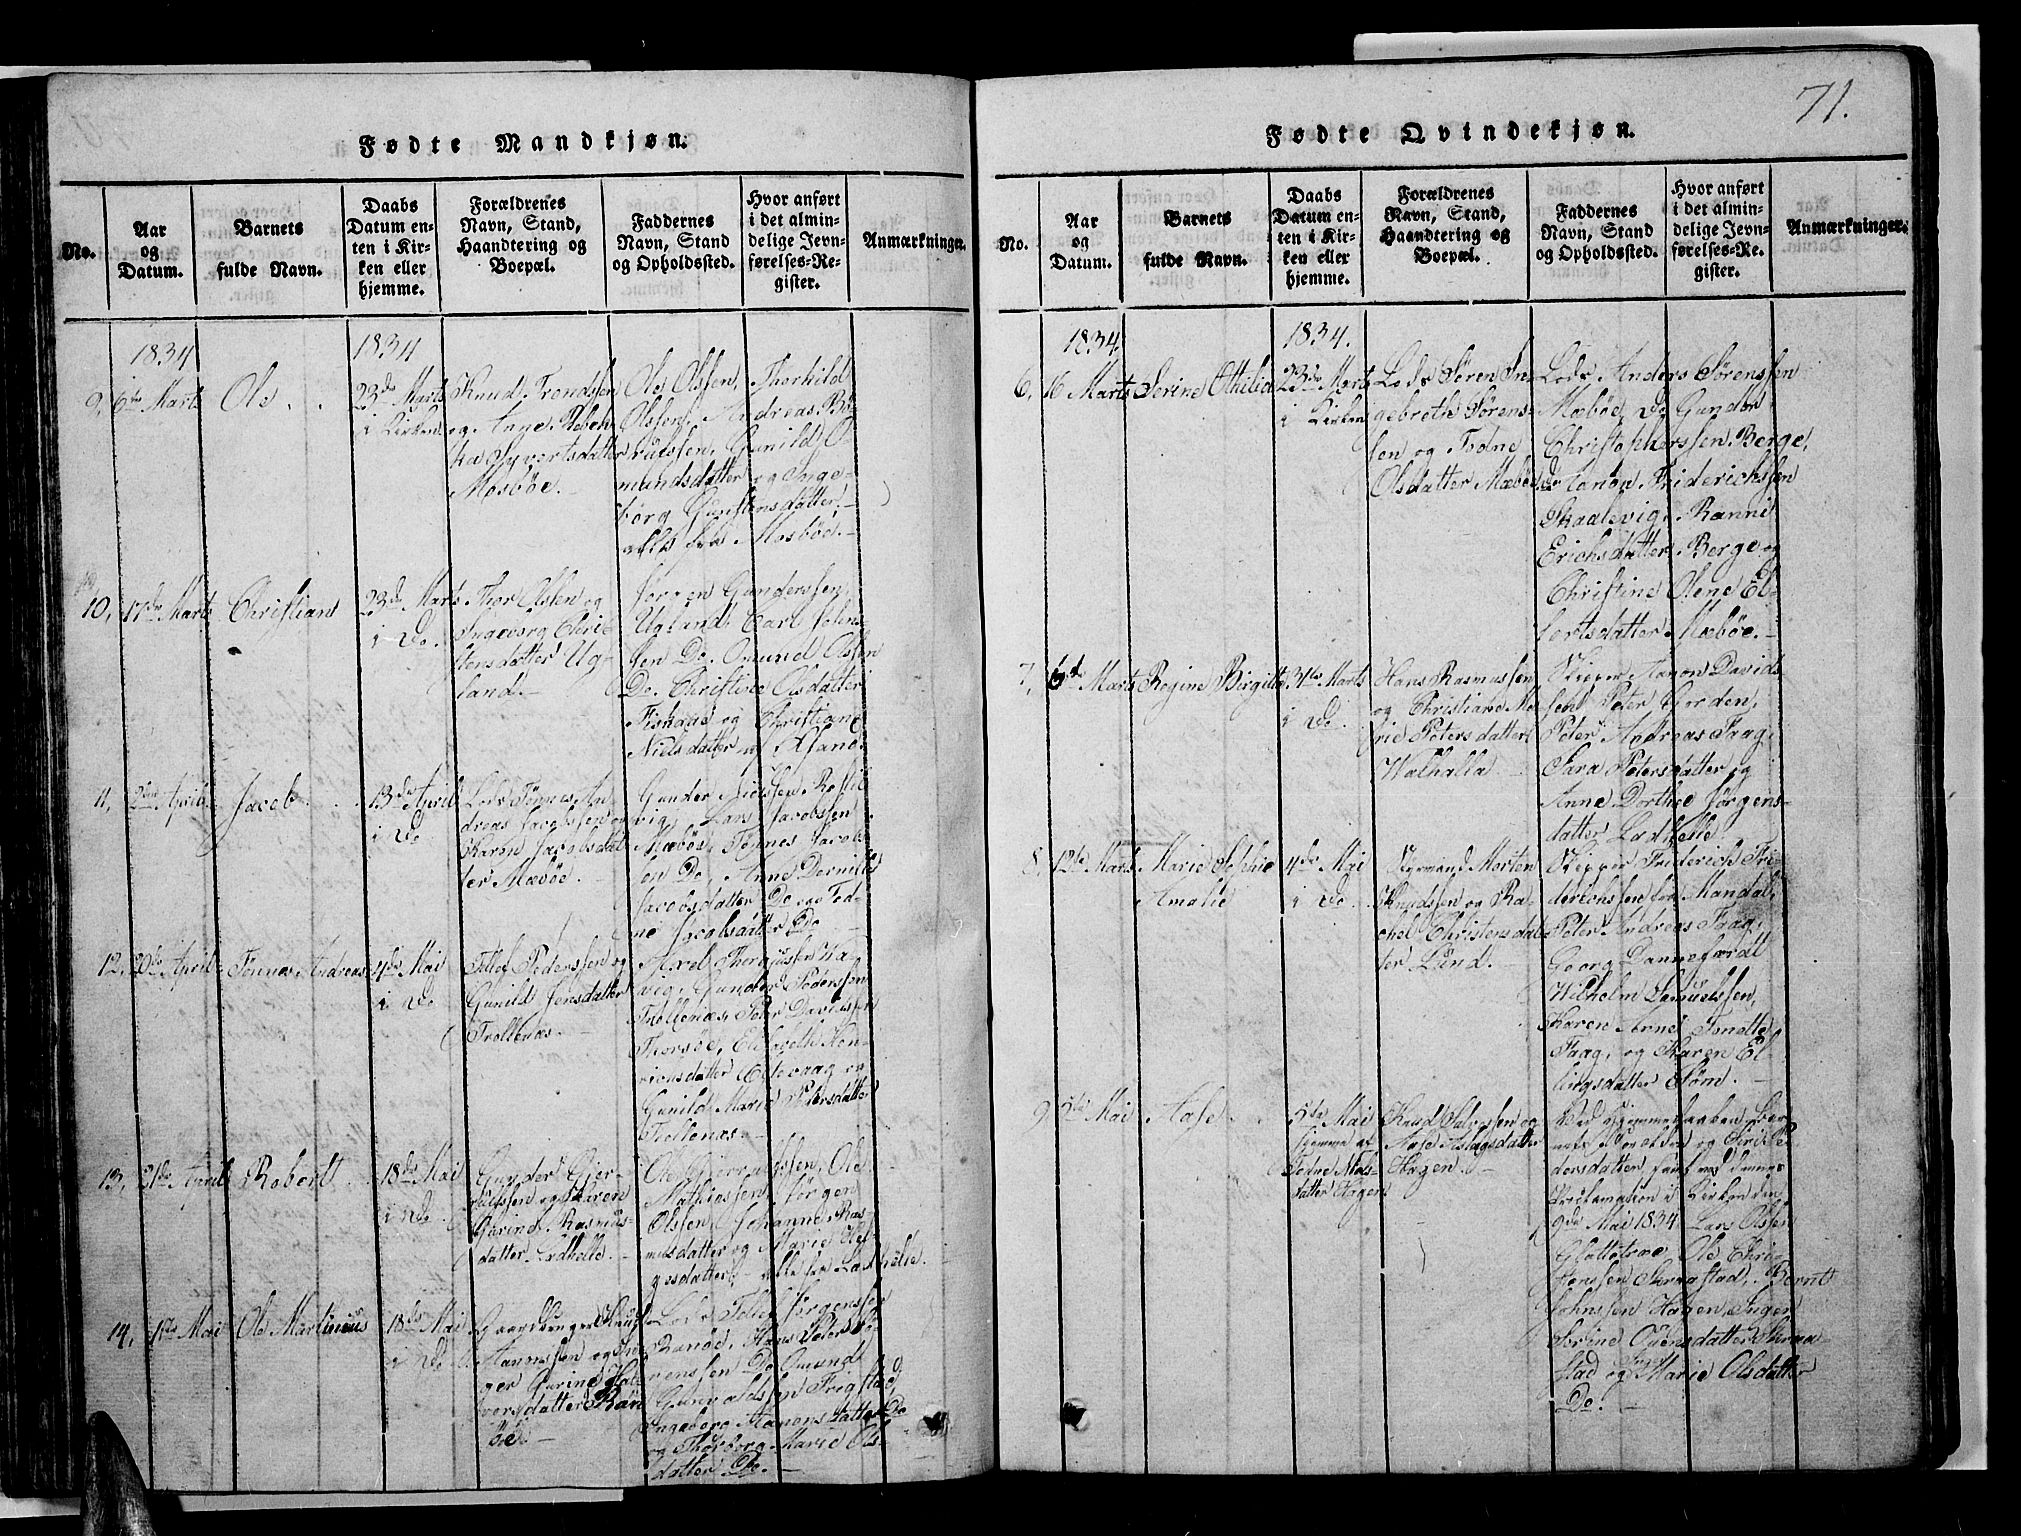 71.
Fødte Mandkjøn.
No.
Aar
og
Datum.
Barnets
fulde Navn.
Daabs
Datum en-
ten i Kir-
ken eller
hjemme.
Forældrenes
Navn, Stand,
Haandtering og
Boepæl.
Faddernes
Navn, Stand
og Opholdssted.
Hvor anført
i det almin-
delige Jevn-
førelses-Re-
gister.
Anmærkninger.
1834
1834
9, 6te Marts
Ole
23de Marts
i Kirken
Knud Trondssen
og Anne Rebek-
ka Syvertsdatter
Mosbøe.
Ole Olssen, Thorkild
Olssen, Andreas
Gunild O-
mundsdatter og Inge-
borg Gunstensdatter,
alle fra Mosbøe.
10, 17de Marts
Christian
23de Marts
i Do.
Thor Olssen og
Ingeborg Chri-
stensdatter Ug-
land.
Jørgen Gunderssen
Ugland, Carl John-
sen Do. Omund Olssen
Do. Christine Olsdatter
Fiskaae og Christiane
Nielsdatter af Chsand.
11, April
Jacob
13de April
i Do
Lods Tønnes An-
dreas Jacobssen og
Karen Jacobsdat-
ter Mæbøe.
Gunder Nielssen
vig, Lars Jacobssen
Mæbøe, Tønnes Jacobs-
sen Do, Anne
Jacobsdatter Do og Tod-
ne Jacobsdatter Do
12, 20de April
Tønnes Andreas
4de Mai
i Do
Tellef Pederssen og
Gunild Jensdatter
Trollenæs.
Axel Thergussen
vig, Gunder Pederssen
Trollenæs, Peder Davidssen
Thorsøe, Elisabeth Hen-
richsdatter og
Gunild Marie Pedersdatter
Trollenæs
13, 21de April
Robert
18de Mai
i Do.
Gunder Gjer-
uldssen og Karen
Gurine Rasmus-
datter Ladhelle.
Ole
Mathiassen, Jørgen
Olssen, Johanne Ras-
musdatter og Marie
alle fra Ladhelle.
14, 1ste Mai
Ole Martinius
18de Mai
i Do
Gaardbruger Knud
Aanenssen og In-
ger Gurine Hal-
versdatter Ran-
øe
Lods Tellef Jørgenssen
Ranøe, Hans Peter Sø-
renssen Do Omund
Gunvaldssen Frigstad,
Ingeborg Aanonsdatter Do
og Thorborg Marie Ols-
datter Do.
Fødte Qvindekjøn.
No.
Aar
og
Datum.
Barnets
fulde Navn.
Daabs
Datum en-
ten i Kir-
ken eller
hjemme.
Forældrenes
Navn, Stand,
Haandtering og
Boepæl.
Faddernes
Navn, Stand
og Opholdssted.
Hvor anført
i det almin-
delige Jevn-
førelses-Re-
gister.
Anmærkninger.
1834.
1834.
6, 16 Marts
Serine Ottilia
23de Marts
i Kirken
Lods Søren In-
gebreth Sørens-
sen og Todne
Olsdatter Mæbøe
Lods Anders Sørenssen
Mæbøe, Do Gunder
Christopherssen Berge,
Do Aanon Friderichssen
Skaalevig, Ranni
Erichsdatter Berge og
Christine Olene El-
lertsdatter Mæbøe.
7, 6te Marts
Regine Birgitte
31te Marts
i Do.
Hans Rasmussen
og Christiane Ma-
rie Petersdatter
Walhalla
Skipper Aanon Davids-
sen, Peter Gorden,
Peter Andreas Faag,
Sara Petersdatter og
Anne Dorthee Jørgens-
datter Ladhelle
8, 12te Marts
Marie Sophie
Amalie
4de Mai
i Do.
Styrmand Morten
Knudssen og Ra-
chel Christensdat-
ter Lund.
Skipper Friderich Fri-
derichssen fra Mandal,
Peter Andreas Faag,
Georg Dannefærdt
Wilhelm Samuelssen,
Karen Anne Tonette
Faag, og Karen El-
lingsdatter Søm.
9, 5te Mai
Aase
5te Mai
hjemme af
Todne Niels-
datter Hagen
Knud Salvessen og
Aase Aslagsdatter
Hagen.
Ved Hjemmedaaben Bar-
nets Forældre og Siri Pe-
dersdatter, samt ved dennes
Proklamation i Kirken den
9de Mai 1834 Lars Olssen
Glattetræe, Ole Chri-
stenssen Skraastad, Bernt
Johnssen Hagen, Inger
Serine Ouensdatter Skraa-
stad og Marie Olsdatter
Do.